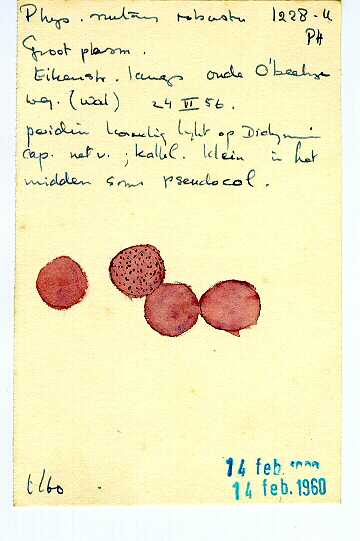 Phys. nutans robusta 1228-u
PH
Groot plasm.
Eikenstr. langs oude O'beekse
weg. (wal) 24 VI 56.
peridium korrelig lijkt op Didymium
cap. netv. ; kalkl. klein in het
midden soms pseudocol.
t/60
14 feb.
14 feb. 1960